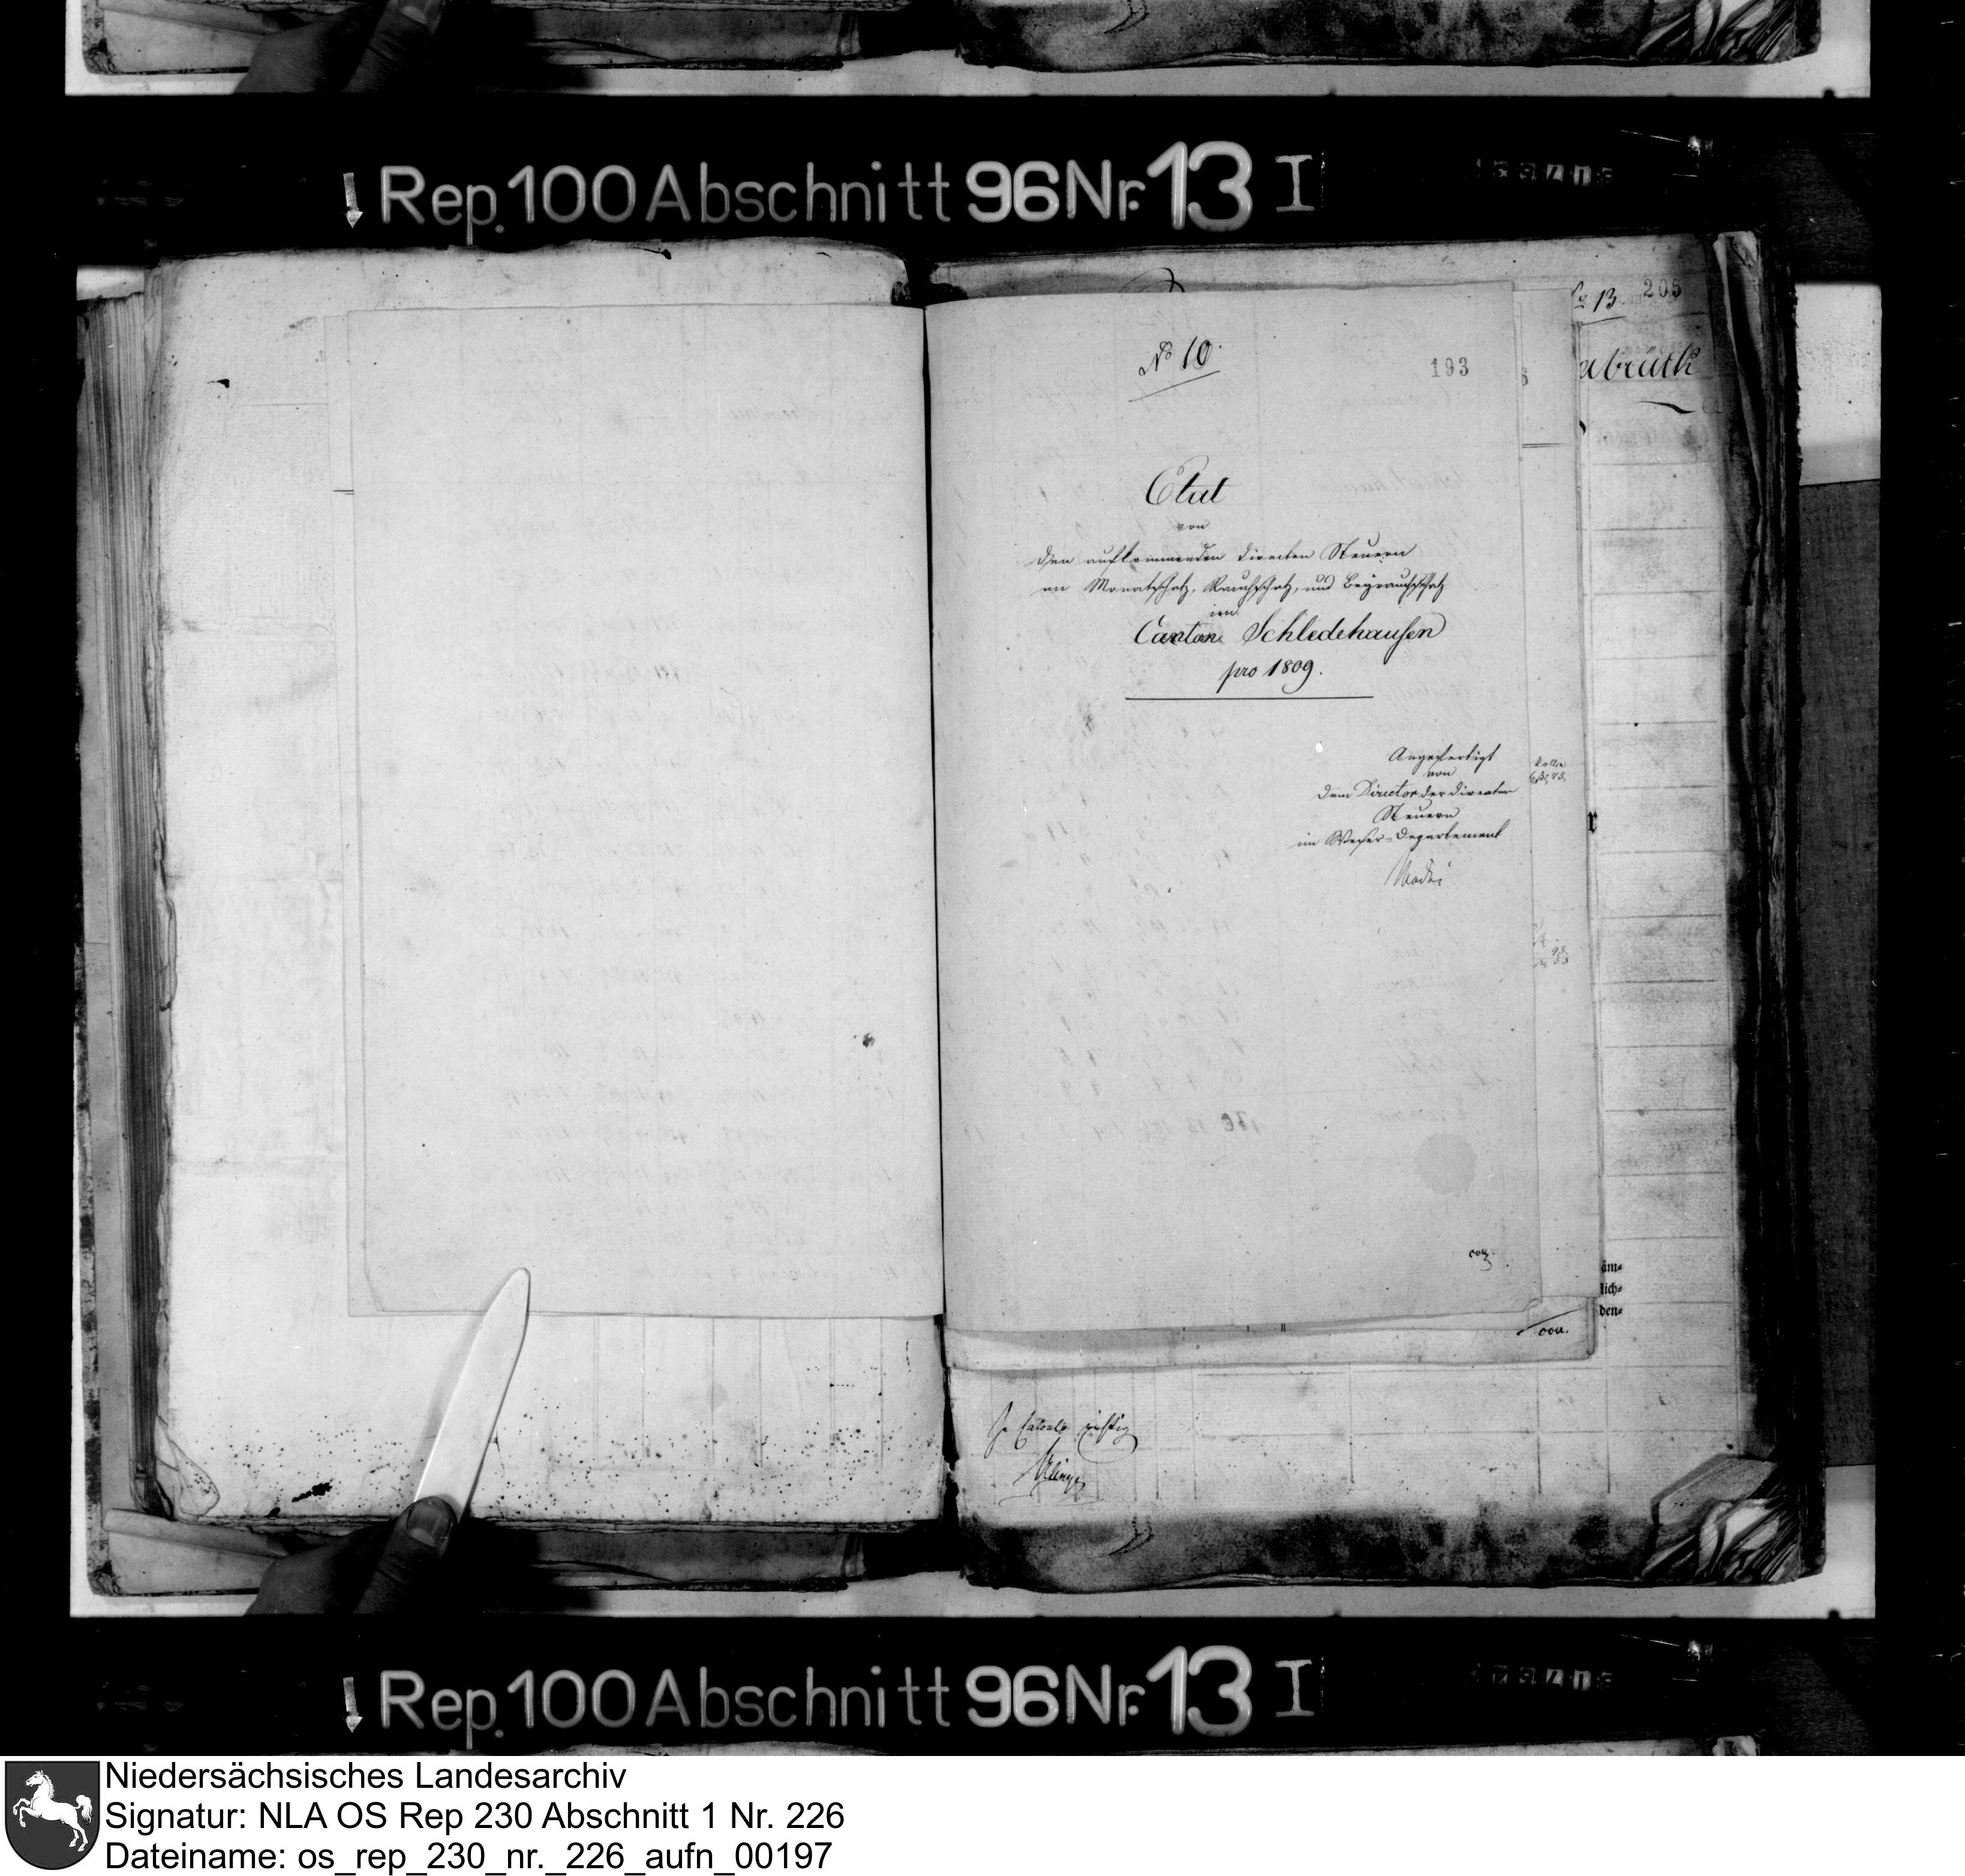 Rep. 100 Abschnitt 96 Nr. 13 I
No 13 205
abrück
No 10.
193
Etat
von
den aufkommenden directen Steuern
an Monatschatz, Rauchschatz, und Beyrauchschatz
im
Canton Schledehausen
pro 1809.
Angefertigt
von
dem Director der directen
Steuern
im Weser-Departement
r
äm=
lich=
den=
cou.
Rep. 100 Abschnitt 96 Nr. 13 I
Niedersächsisches Landesarchiv
Signatur: NLA OS Rep 230 Abschnitt 1 Nr. 226
Dateiname: os_rep_230_nr._226_aufn_00197